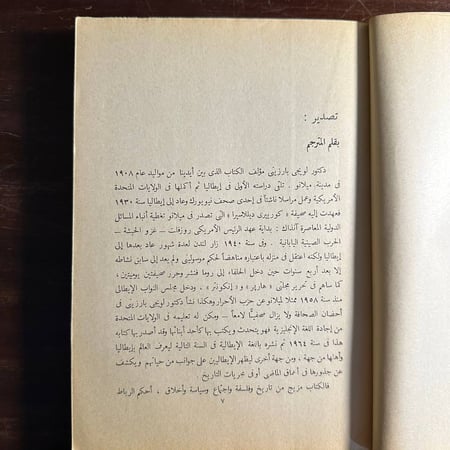 تصدير :
بقلم المترجم
دكتور لويجى بارزينى مؤلف الكتاب الذى بين أيدينا من مواليد عام ١٩٠٨
فى مدينة ميلانو . تلقى دراسته الأولى فى إيطاليا ثم أكملها فى الولايات المتحدة
الأمريكية وعمل مراسلا ناشئاً فى إحدى صحف نيويورك وعاد إلى إيطاليا سنة ١٩٣٠
فعهدت إليه صحيفة « كورييرى ديللاسيرا » التى تصدر فى ميلانو تغطية أنباء المسائل
الدولية المعاصرة آنذاك : بداية عهد الرئيس الأمريكى روزفلت – غزو الحبشة –
الحرب الصينية اليابانية . وفى سنة ١٩٤٠ زار لندن لعدة شهور عاد بعدها إلى
إيطاليا ولكنه اعتقل فى منزله باعتباره مناهضاً لحكم موسولينى ولم يعد إلى سابق نشاطه
إلا بعد أربع سنوات حين دخل الحلفاء إلى روما فنشر وحرر صحيفتين يوميتين ،
كما ساهم فى تحرير مجلتى « هاربر » و « إنكونتر » ، ودخل مجلس النواب الإيطالى
منذ سنة ١٩٥٨ ممثلا لميلانو عن حزب الأحرار وهكذا نشأ دكتور لويجى بارزينى فى
أحضان الصحافة ولا يزال صحفيًّا لامعاً – ومكن له تعليمه فى الولايات المتحدة
من إجادة اللغة الإنجليزية فهو يتحدث ويكتب بها كأحد أبنائها وقد أصدر بها كتابه
هذا فى سنة ١٩٦٤ ثم نشره باللغة الإيطالية فى السنة التالية ليعرف العالم بإيطاليا
وأهلها من جهة ، ومن جهة أخرى ليظهر الإيطاليين على جوانب من حياتهم ويكشف
عن جذورها فى أعماق الماضى أو فى مجريات التاريخ .
فالكتاب مزيج من تاريخ وفلسفة واجتماع وسياسة وأخلاق ، أحكم الرباط
٧